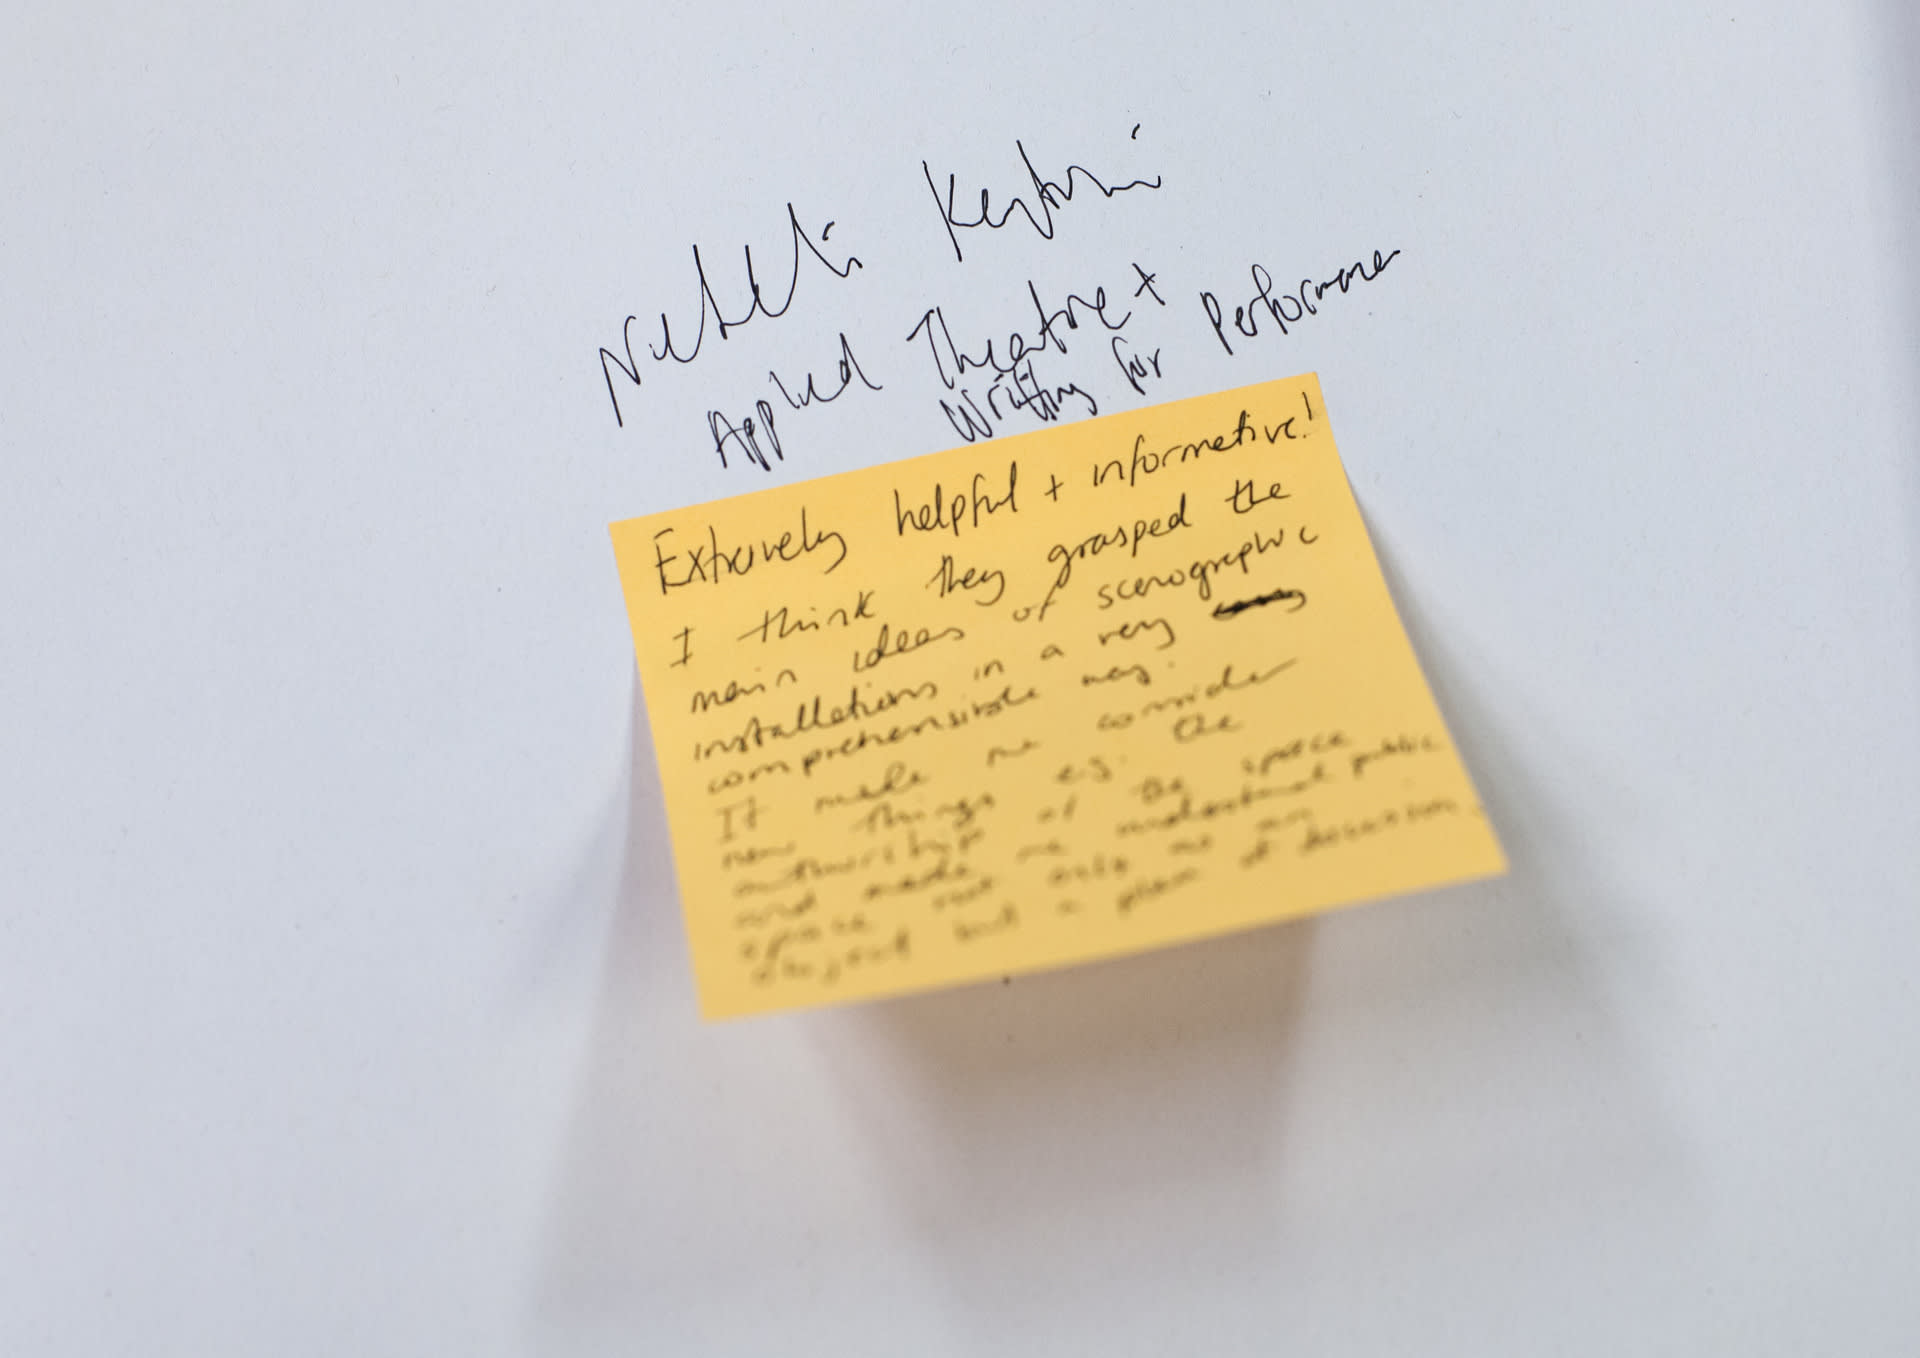 Applied Theatre +
Writing for Performance
Extremely helpful + informative!
I think they grasped the
main ideas of scenographic
installations in a very
comprehensible way.
It made me consider
new things e.g. the
authorship of the space
and made me understand public
space not only as an
object but a place of discussion.